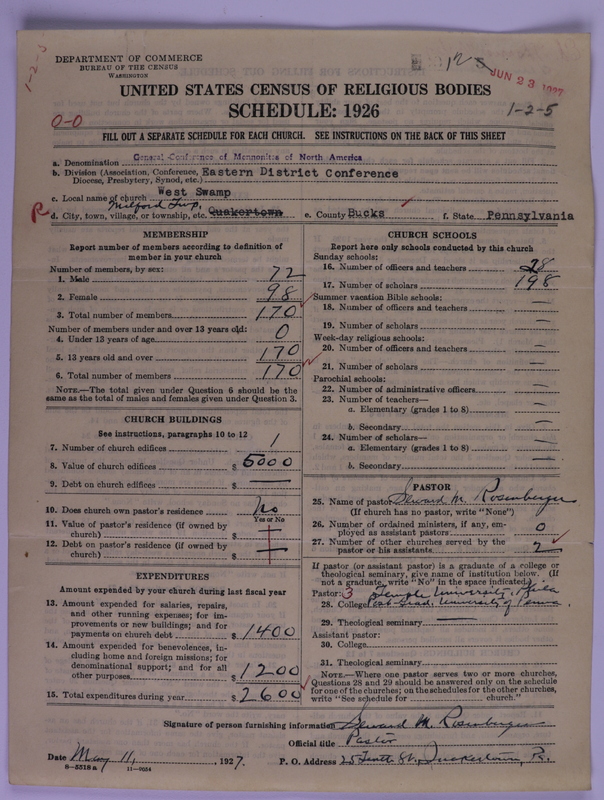 DEPARTMENT OF COMMERCE
BUREAU OF THE CENSUS
WASHINGTON
1-2-5
JUN 23 1927
UNITED STATES CENSUS OF RELIGIOUS BODIES
SCHEDULE: 1926
1-2-5
0-0
FILL OUT A SEPARATE SCHEDULE FOR EACH CHURCH. SEE INSTRUCTIONS ON THE BACK OF THIS SHEET
a. Denomination General Conference of Mennonites of North America
b. Division (Association, Conference, Diocese, Presbytery, Synod, etc.) Eastern District Conference
c. Local name of church West Swamp
Milford Twp.
d. City, town, village, or township, etc. Quakertown e. County Bucks f. State Pennsylvania
MEMBERSHIP
Report number of members according to definition of
member in your church
Number of members, by sex:
1. Male 72
2. Female 98
3. Total number of members 170
Number of members under and over 13 years old:
4. Under 13 years of age 0
5. 13 years old and over 170
6. Total number of members 170
NOTE.—The total given under Question 6 should be the
same as the total of males and females given under Question 3.
CHURCH BUILDINGS
See instructions, paragraphs 10 to 12
7. Number of church edifices 1
8. Value of church edifices $ 5000
9. Debt on church edifices $ —
10. Does church own pastor's residence No
Yes or No
11. Value of pastor's residence (if owned by
church) $
12. Debt on pastor's residence (if owned by
church) $ —
EXPENDITURES
Amount expended by your church during last fiscal year
13. Amount expended for salaries, repairs,
and other running expenses; for im-
provements or new buildings; and for
payments on church debt $ 1400
14. Amount expended for benevolences, in-
cluding home and foreign missions; for
denominational support; and for all
other purposes $ 1200
15. Total expenditures during year $ 2600
CHURCH SCHOOLS
Report here only schools conducted by this church
Sunday schools:
16. Number of officers and teachers 28
17. Number of scholars 198
Summer vacation Bible schools:
18. Number of officers and teachers —
19. Number of scholars —
Week-day religious schools:
20. Number of officers and teachers —
21. Number of scholars —
Parochial schools:
22. Number of administrative officers —
23. Number of teachers—
a. Elementary (grades 1 to 8) —
b. Secondary —
24. Number of scholars—
a. Elementary (grades 1 to 8) —
b. Secondary —
PASTOR
25. Name of pastor Seward M. Rosenberger
(If church has no pastor, write "None")
26. Number of ordained ministers, if any, em-
ployed as assistant pastors 0
27. Number of other churches served by the
pastor or his assistants 2
If pastor (or assistant pastor) is a graduate of a college or
theological seminary, give name of institution below. (If
not a graduate, write "No" in the space indicated)
Pastor: 3 Temple University, Phila
28. College Post-Grad. University of Penna.
29. Theological seminary —
Assistant pastor:
30. College
31. Theological seminary
NOTE.—Where one pastor serves two or more churches,
Questions 28 and 29 should be answered only on the schedule
for one of the churches; on the schedules for the other churches,
write "See schedule for church."
Signature of person furnishing information Seward M. Rosenberger
Official title Pastor
Date May 11, 1927. P. O. Address 25 Tenth St., Quakertown, Pa.
8-5518a 11-9054